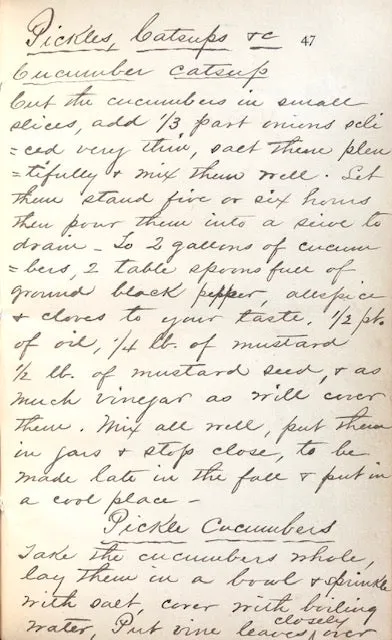 Pickles, Catsups &c 47
Cucumber Catsup
Cut the cucumbers in small
slices, add 1/3 part onions sli
=ced very thin, salt them plen
=tifully & mix them well. Let
them stand five or six hours
then pour them into a seive to
drain - To 2 gallons of cucum
=bers, 2 table spoons full of
ground black pepper, allspice
& cloves to your taste. 1/2 pt.
of oil, 1/4 lb. of mustard
1/2 lb. of mustard seed, & as
much vinegar as will cover
them. Mix all well, put them
in jars & stop close, to be
made late in the fall & put in
a cool place -
Pickle Cucumbers
Take the cucumbers whole,
lay them in a bowl & sprinkle
with salt, cover with boiling
closely
water, Put vine leaves over